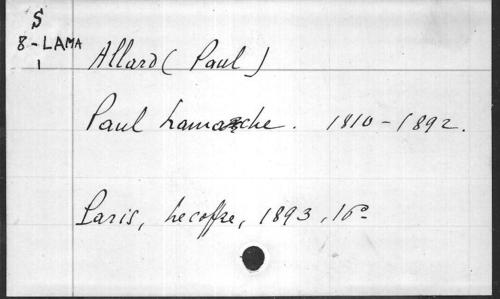 S
8-LAMA
1
Allard (Paul)
Paul Lamarche. 1810-1892.
Paris, Lecoffre, 1893, 16º